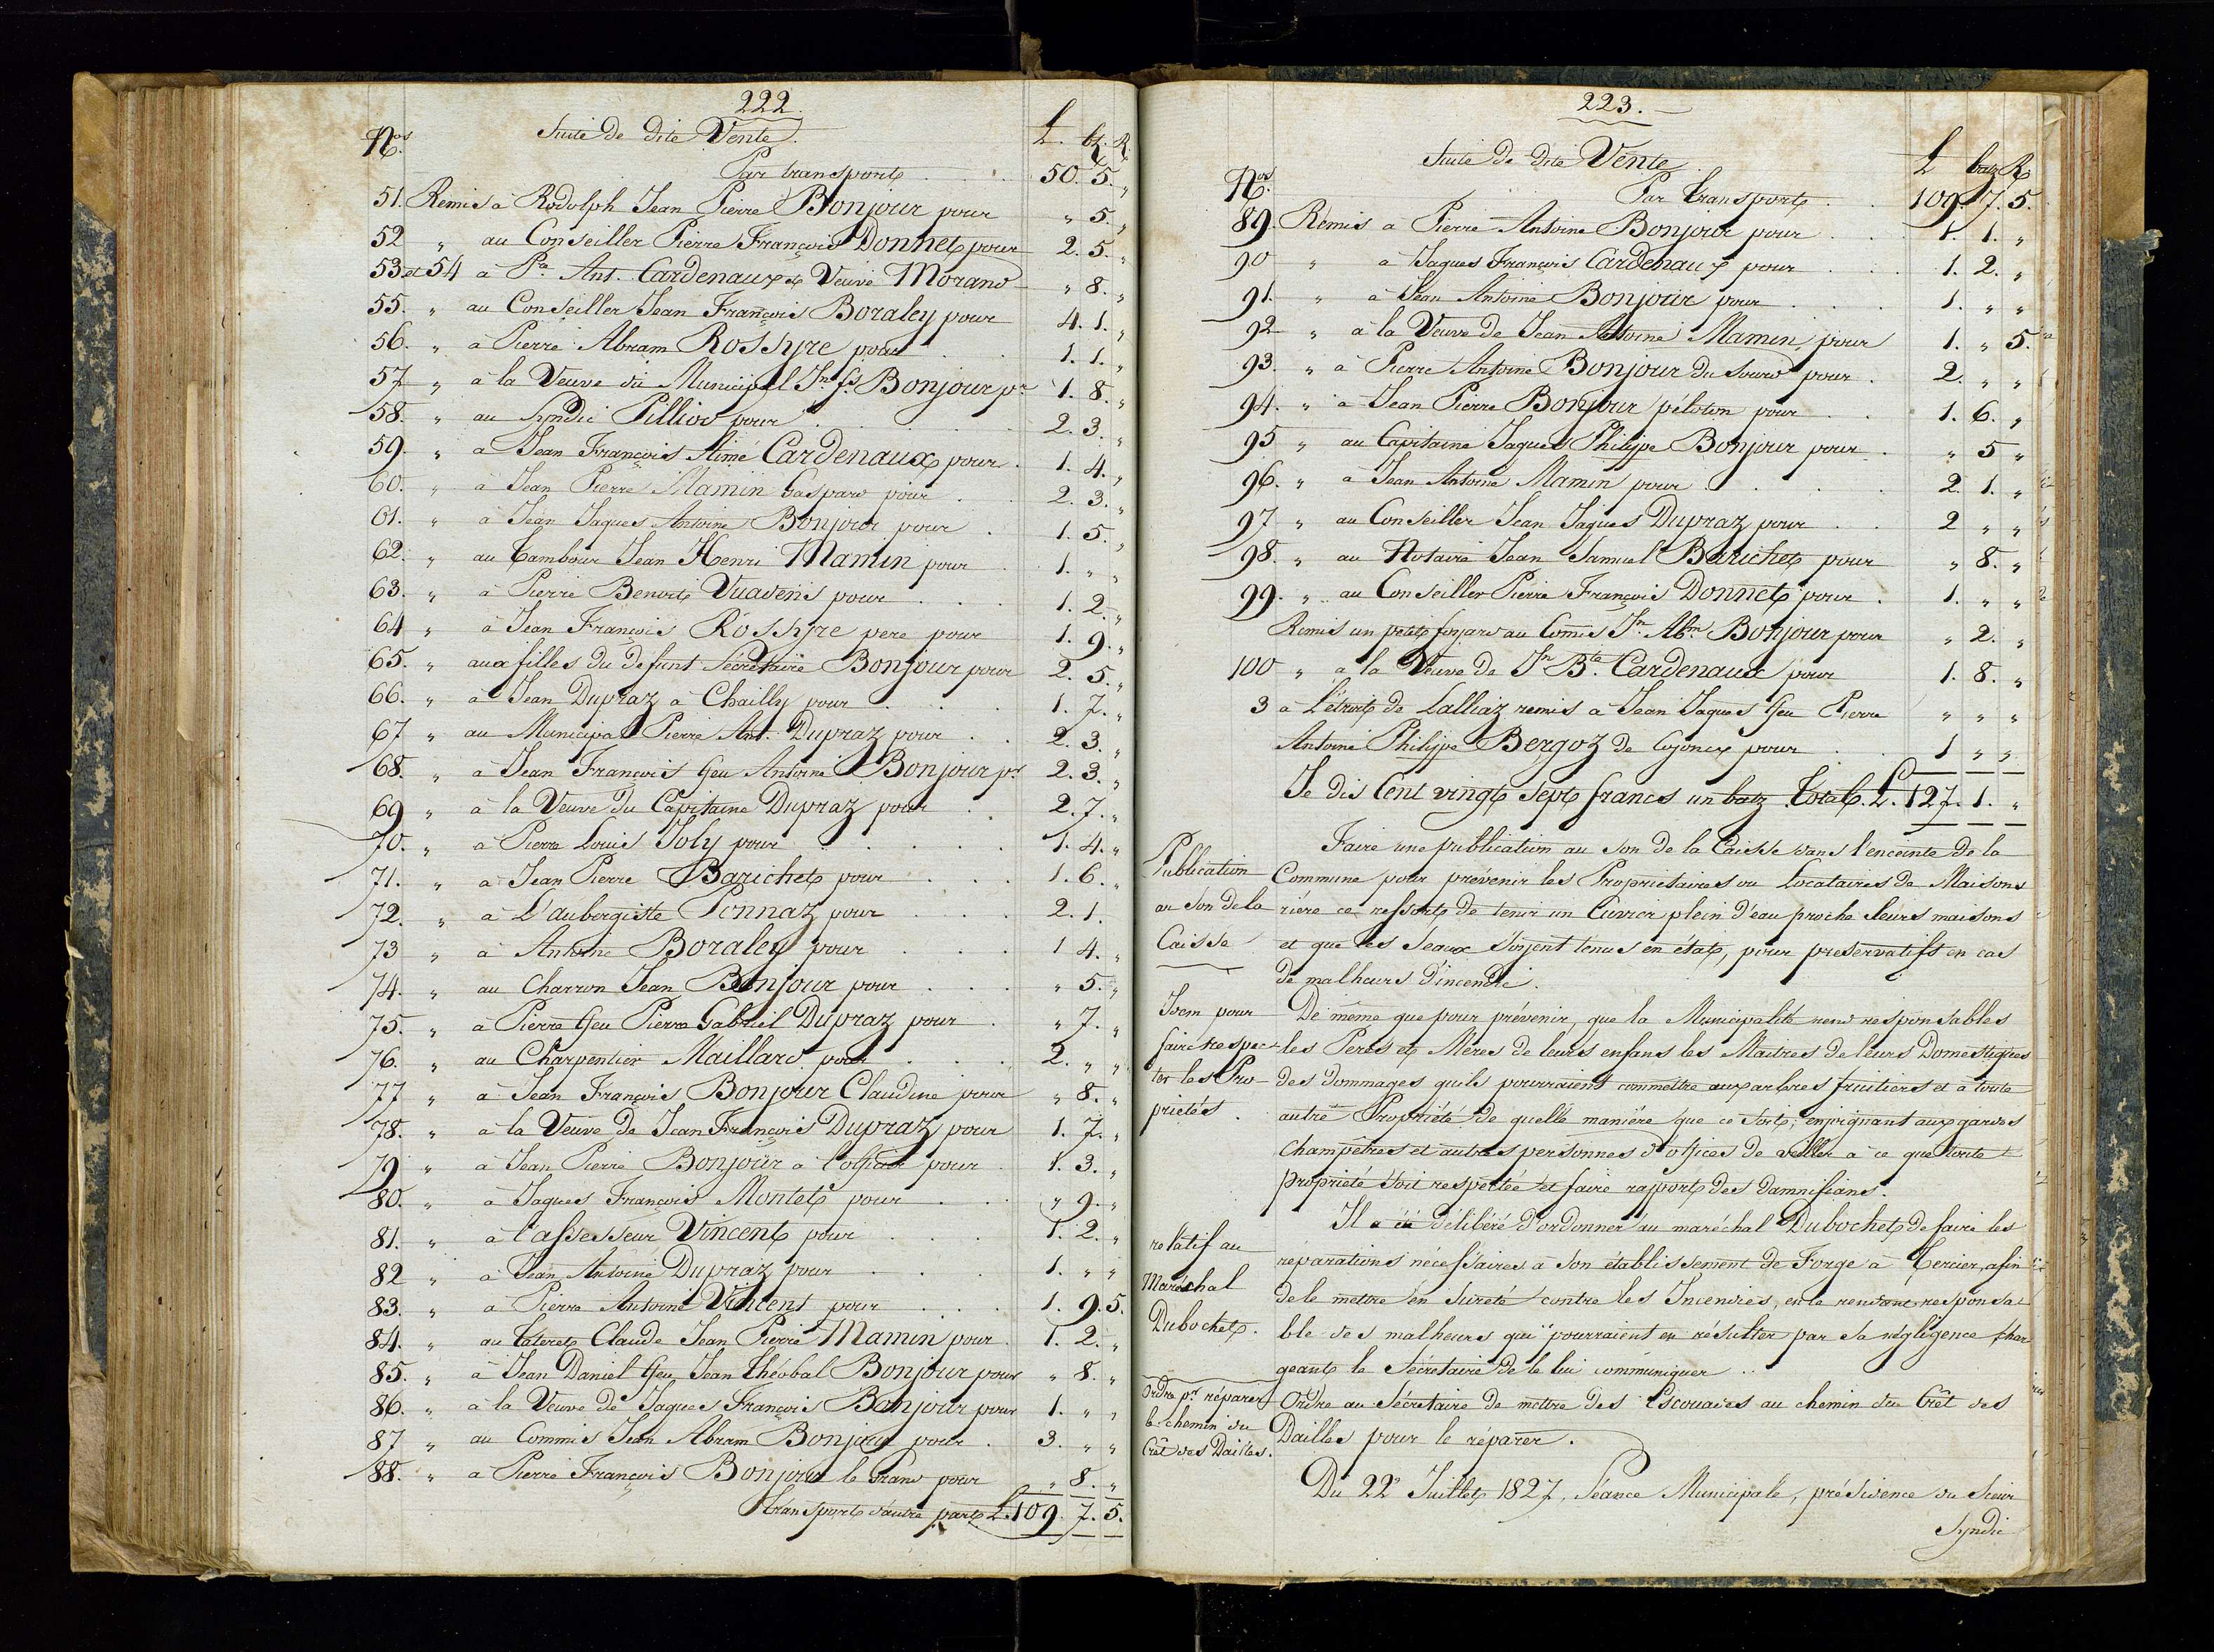 222.
Suite de dite Vente.
Nos. L. bz. R.
Par transport . . 50. 5. "
51. Remis à Rodolph Jean Pierre Bonjour pour " 5. "
52 " au Conseiller Pierre François Donnet pour 2. 5. "
53. et 54 à Pre Ant. Cardenaux et Veuve Morand " 8. "
55. " au Conseiller Jean François Boraley pour 4. 1. "
56. " à Pierre Abram Rossyre pour . . 1. 1. "
57 " à la Veuve du Municipal Jn fs Bonjour pr 1. 8. "
58. " au Syndic Pilliod pour . . 2. 3. "
59. " à Jean François Aimé Cardenaux pour . 1. 4. "
60. " à Jean Pierre Mamin Gaspard pour . 2. 3. "
61. " à Jean Jaques Antoine Bonjour pour . 1. 5. "
62. " au Tambour Jean Henri Mamin pour . 1. " "
63. " à Pierre Benoit Vuavens pour . . . 1. 2. "
64 " à Jean François Rossyre pere pour 1. 9. "
65. " aux filles du defunt Sécrétaire Bonjour pour 2. 5. "
66. " à Jean Dupraz à Chailly pour . . . 1. 7. "
67 " au Municipal Pierre Ant. Dupraz pour . . 2. 3. "
68. " à Jean François feu Antoine Bonjour pr 2. 3. "
69 " à la Veuve du Capitaine Dupraz pour . 2. 7. "
70. " à Pierre Louis Joly pour . . . . 1. 4. "
71. " à Jean Pierre Barichet pour . . . 1. 6. "
72. " à L'aubergiste Ponnaz pour . . . 2. 1.
73 " à Antoine Boraley pour . . . 1 4. "
74. " au Charron Jean Bonjour pour . . . " 5. "
75. " à Pierre feu Pierre Gabriel Dupraz pour . " 7. "
76. " au Charpentier Maillard pour . . . 2. " "
77 " à Jean François Bonjour Claudine pour " 8. "
78. " à la Veuve de Jean François Dupraz pour 1. 7. "
79 " à Jean Pierre Bonjour à l'officier pour 1. 3. "
80. " à Jaques François Montet pour . . " 9. "
81. " à l'assesseur Vincent pour . . . 1. 2. "
82 " à Jean Antoine Dupraz pour . . . 1. " "
83. " à Pierre Antoine Vincent pour . . . 1. 9. 5.
84. " au Claude Jean Pierre Mamin pour . 1. 2. "
85. " à Jean Daniel feu Jean Théobal Bonjour pour " 8. "
86. " à la Veuve de Jaques François Bonjour pour 1. " "
87 " au Commis Jean Abram Bonjour pour . 3. " "
88. " à Pierre François Bonjour le Grand pour " 8. "
Transport d'autre part L. 109. 7. 5.
223.
Suite de dite Vente
Nos. L batz R
Par transport . . 109. 7. 5.
89. Remis à Pierre Antoine Bonjour pour . . . 1. 1. "
90 " à Jaques François Cardenaux pour . . 1. 2. "
91. " à Jean Antoine Bonjour pour . . . 1. " "
92 " à la Veuve de Jean Antoine Mamin, pour 1. " 5.
93. " à Pierre Antoine Bonjour du sourd pour . 2. " "
94. " à Jean Pierre Bonjour péloton pour . . 1. 6. "
95 " au Capitaine Jaques Philippe Bonjour pour . " 5 "
96. " à Jean Antoine Mamin pour . . . . 2. 1. "
97 " au Conseiller Jean Jaques Dupraz pour . . 2 " "
98. " au Notaire Jean Samuel Barichet pour " 8. "
99. " au Conseiller Pierre François Donnet pour . 1. " "
Remis un petit au Comis Jn Abm Bonjour pour " 2. "
100 " à la Veuve de Jn Bte Cardenaux pour 1. 8. "
3 à L'étroit de Lalliaz remis à Jean Jaques feu Pierre " " "
Antoine Philippe Bergoz de Cojonex pour . . 1 " "
Je dis Cent vingt sept francs un batz Total. L. 127. 1. "
Publication au son de la Caisse
Faire une publication au son de la Caisse dans l'enceinte de la
Commune pour prévenir les Propriétaires ou Locataires de Maisons
rière ce ressort de tenir un Cuvier plein d'eau proche leurs maisons
et que les Seaux soyent tenus en état, pour preservatifs en cas
de malheurs d'incendie.
Idem pour faire respecter les Propriétés.
De même que pour prévenir, que la Municipalité rend responsables
les Peres et Mères de leurs enfans les Maitres de leurs Domestiques
des dommages qu'ils pourraient commettre aux arbres fruitiers et à toute
autre Propriété de quelle manière que ce soit; enjoignant aux gardes
Champêtres et autres personnes d'offices de veiller à ce que toute
propriété soit respectée et faire rapport des damnifians.
relatif au Maréchal Dubochet.
Il a été délibéré d'ordonner au maréchal Dubochet de faire les
réparations nécessaires à son établissement de Forge à Tercier, afin
de le mettre en sureté contre les Incendies, en le rendant responsa-
ble des malheurs qui pourraient en résulter par sa négligence char
geant le Sécretaire de le lui communiquer . .
Ordre pr réparer le chemin du Crêt des Dailles.
Ordre au Sécretaire de mettre des Escouades au chemin du Crêt des
Dailles pour le réparer.
Du 22e Juillet 1827, Séance Municipale, présidence du Sieur
Syndic